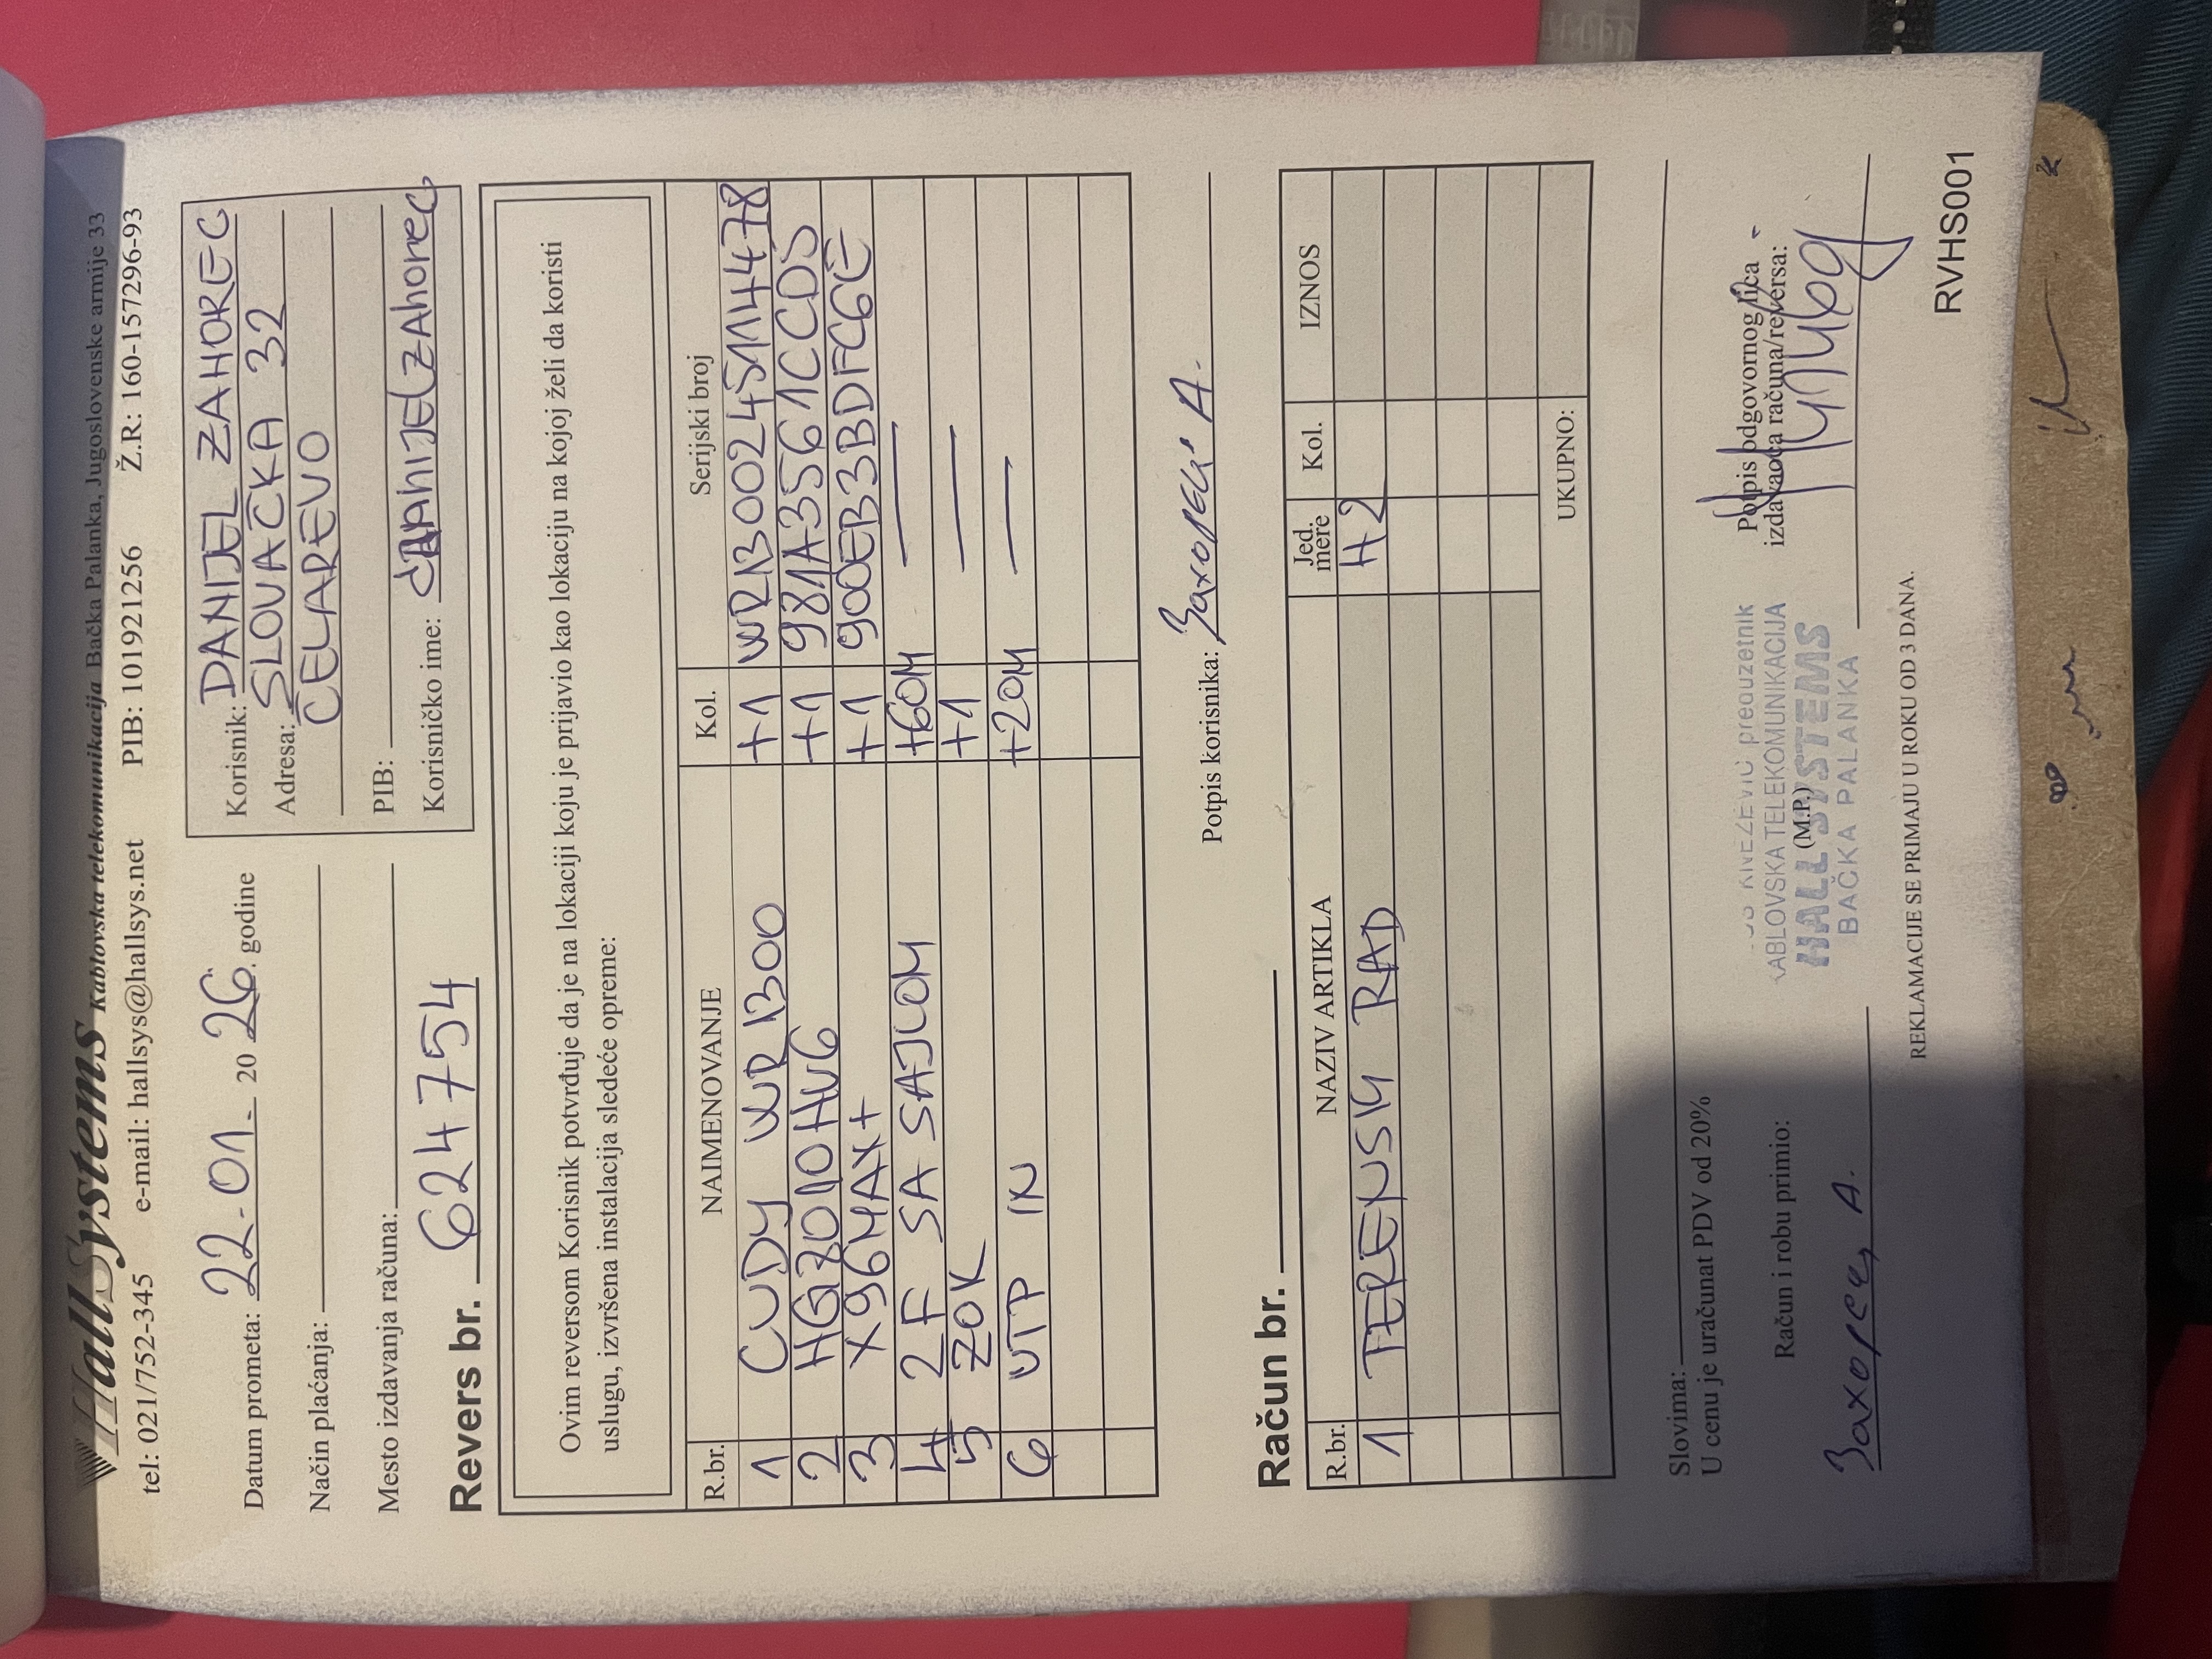 HallSystems Kablovska telekomunikacija Bačka Palanka, Jugoslovenske armije 33
tel: 021/752-345 e-mail: hallsys@hallsys.net PIB: 101921256 Ž.R: 160-1557296-93
Datum prometa: 22.01. 2026. godine
Način plaćanja:
Mesto izdavanja računa:
Korisnik: DANIJEL ZAHOREC
Adresa: SLOVAČKA 32
ČELAREVO
PIB:
Korisničko ime: dANIJELZAhoreC
Revers br. 624754
Ovim reversom Korisnik potvrđuje da je na lokaciji koju je prijavio kao lokaciju na kojoj želi da koristi
uslugu, izvršena instalacija sledeće opreme:
R.br. NAIMENOVANJE Kol. Serijski broj
1 CUDY WR1300 +1 WR13002451144478
2 HG7010HWG +1 981A3561CCD5
3 X96MAX+ +1 900EB3BDFC6E
4 2F SA SAJLOM +60M —
5 ZOK +1 —
6 UTP IN +20M —
Potpis korisnika: Захорец А.
Račun br.
R.br. NAZIV ARTIKLA Jed. mere Kol. IZNOS
1 TERENSKI RAD H2
UKUPNO:
Slovima:
U cenu je uračunat PDV od 20%
Račun i robu primio:
Захорец А.
KNEŽEVIĆ preduzetnik
KABLOVSKA TELEKOMUNIKACIJA
HALL SYSTEMS
(M.P.)
BAČKA PALANKA
Potpis odgovornog lica
izdavaoca računa/reversa:
REKLAMACIJE SE PRIMAJU U ROKU OD 3 DANA.
RVHS001